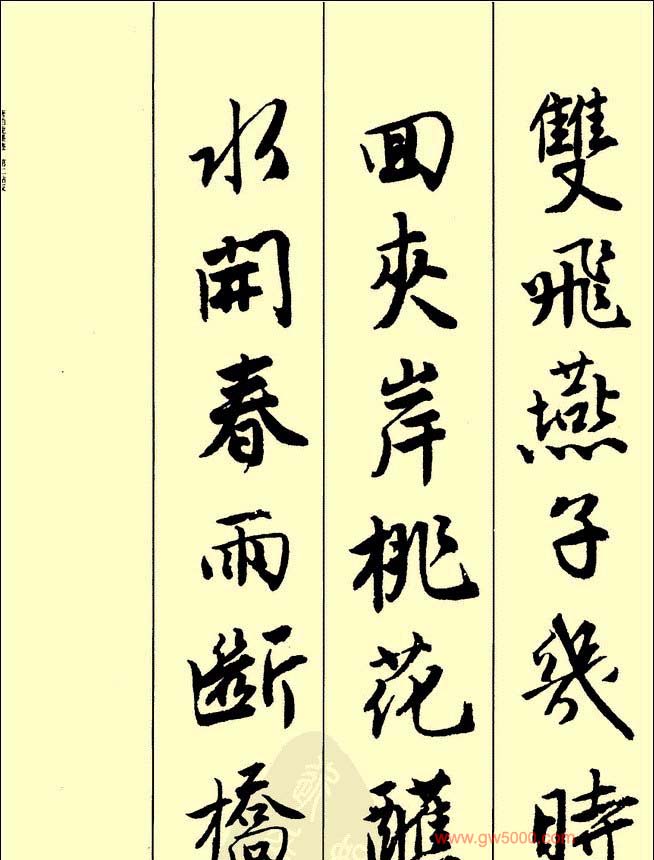 雙飛燕子幾時
回夾岸桃花蘸
水開春雨斷橋
www.gw5000.com